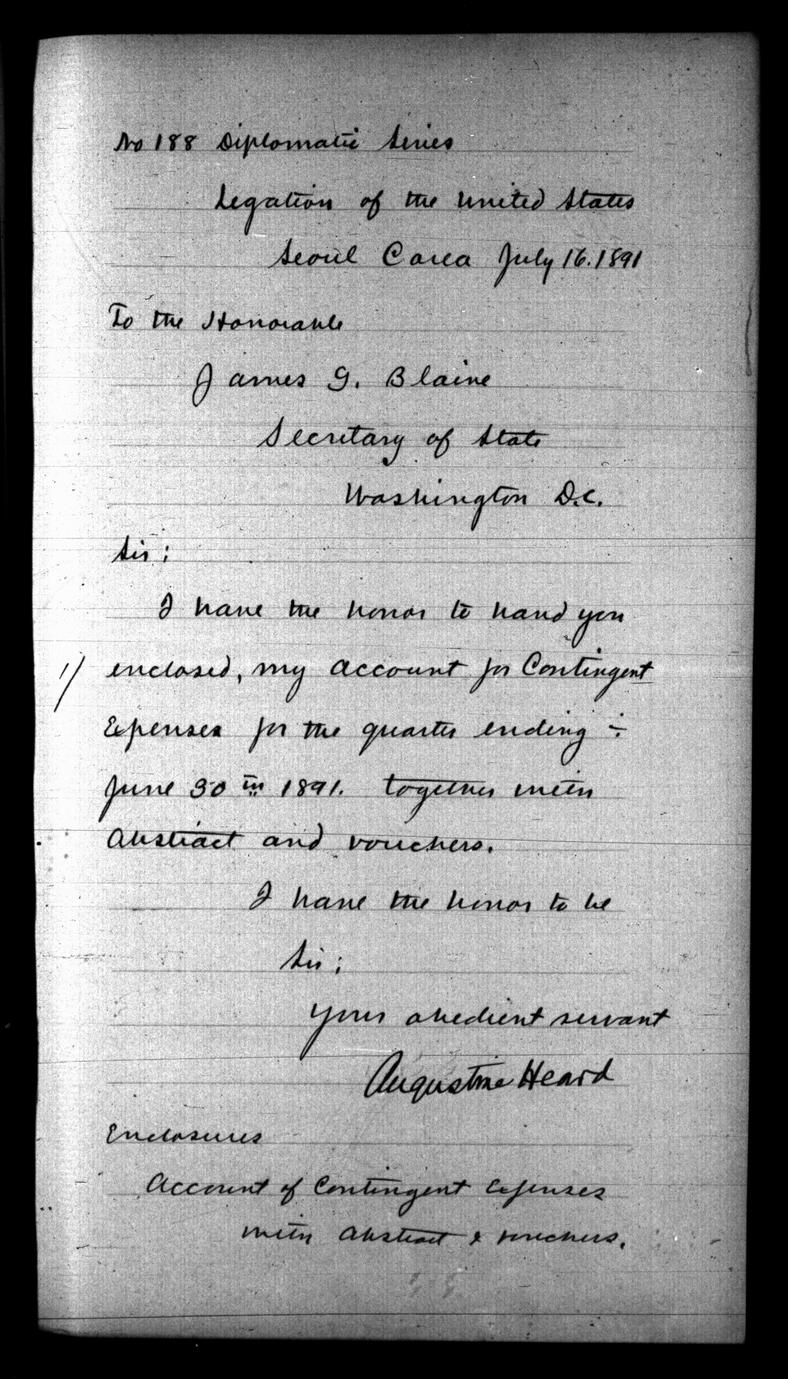 No 188 Diplomatic Series
Legation of the United States
Seoul Corea July 16. 1891
To the Honorable
James G. Blaine
Secretary of State
Washington D.C.
Sir;
I have the honor to hand you
1/ enclosed, my account for Contingent
Expenses for the quarter ending ÷
June 30th 1891. together with
Abstract and vouchers.
I have the honor to be
Sir;
Your obedient servant
Augustine Heard
Enclosures
Account of Contingent Expenses
with Abstract & vouchers.